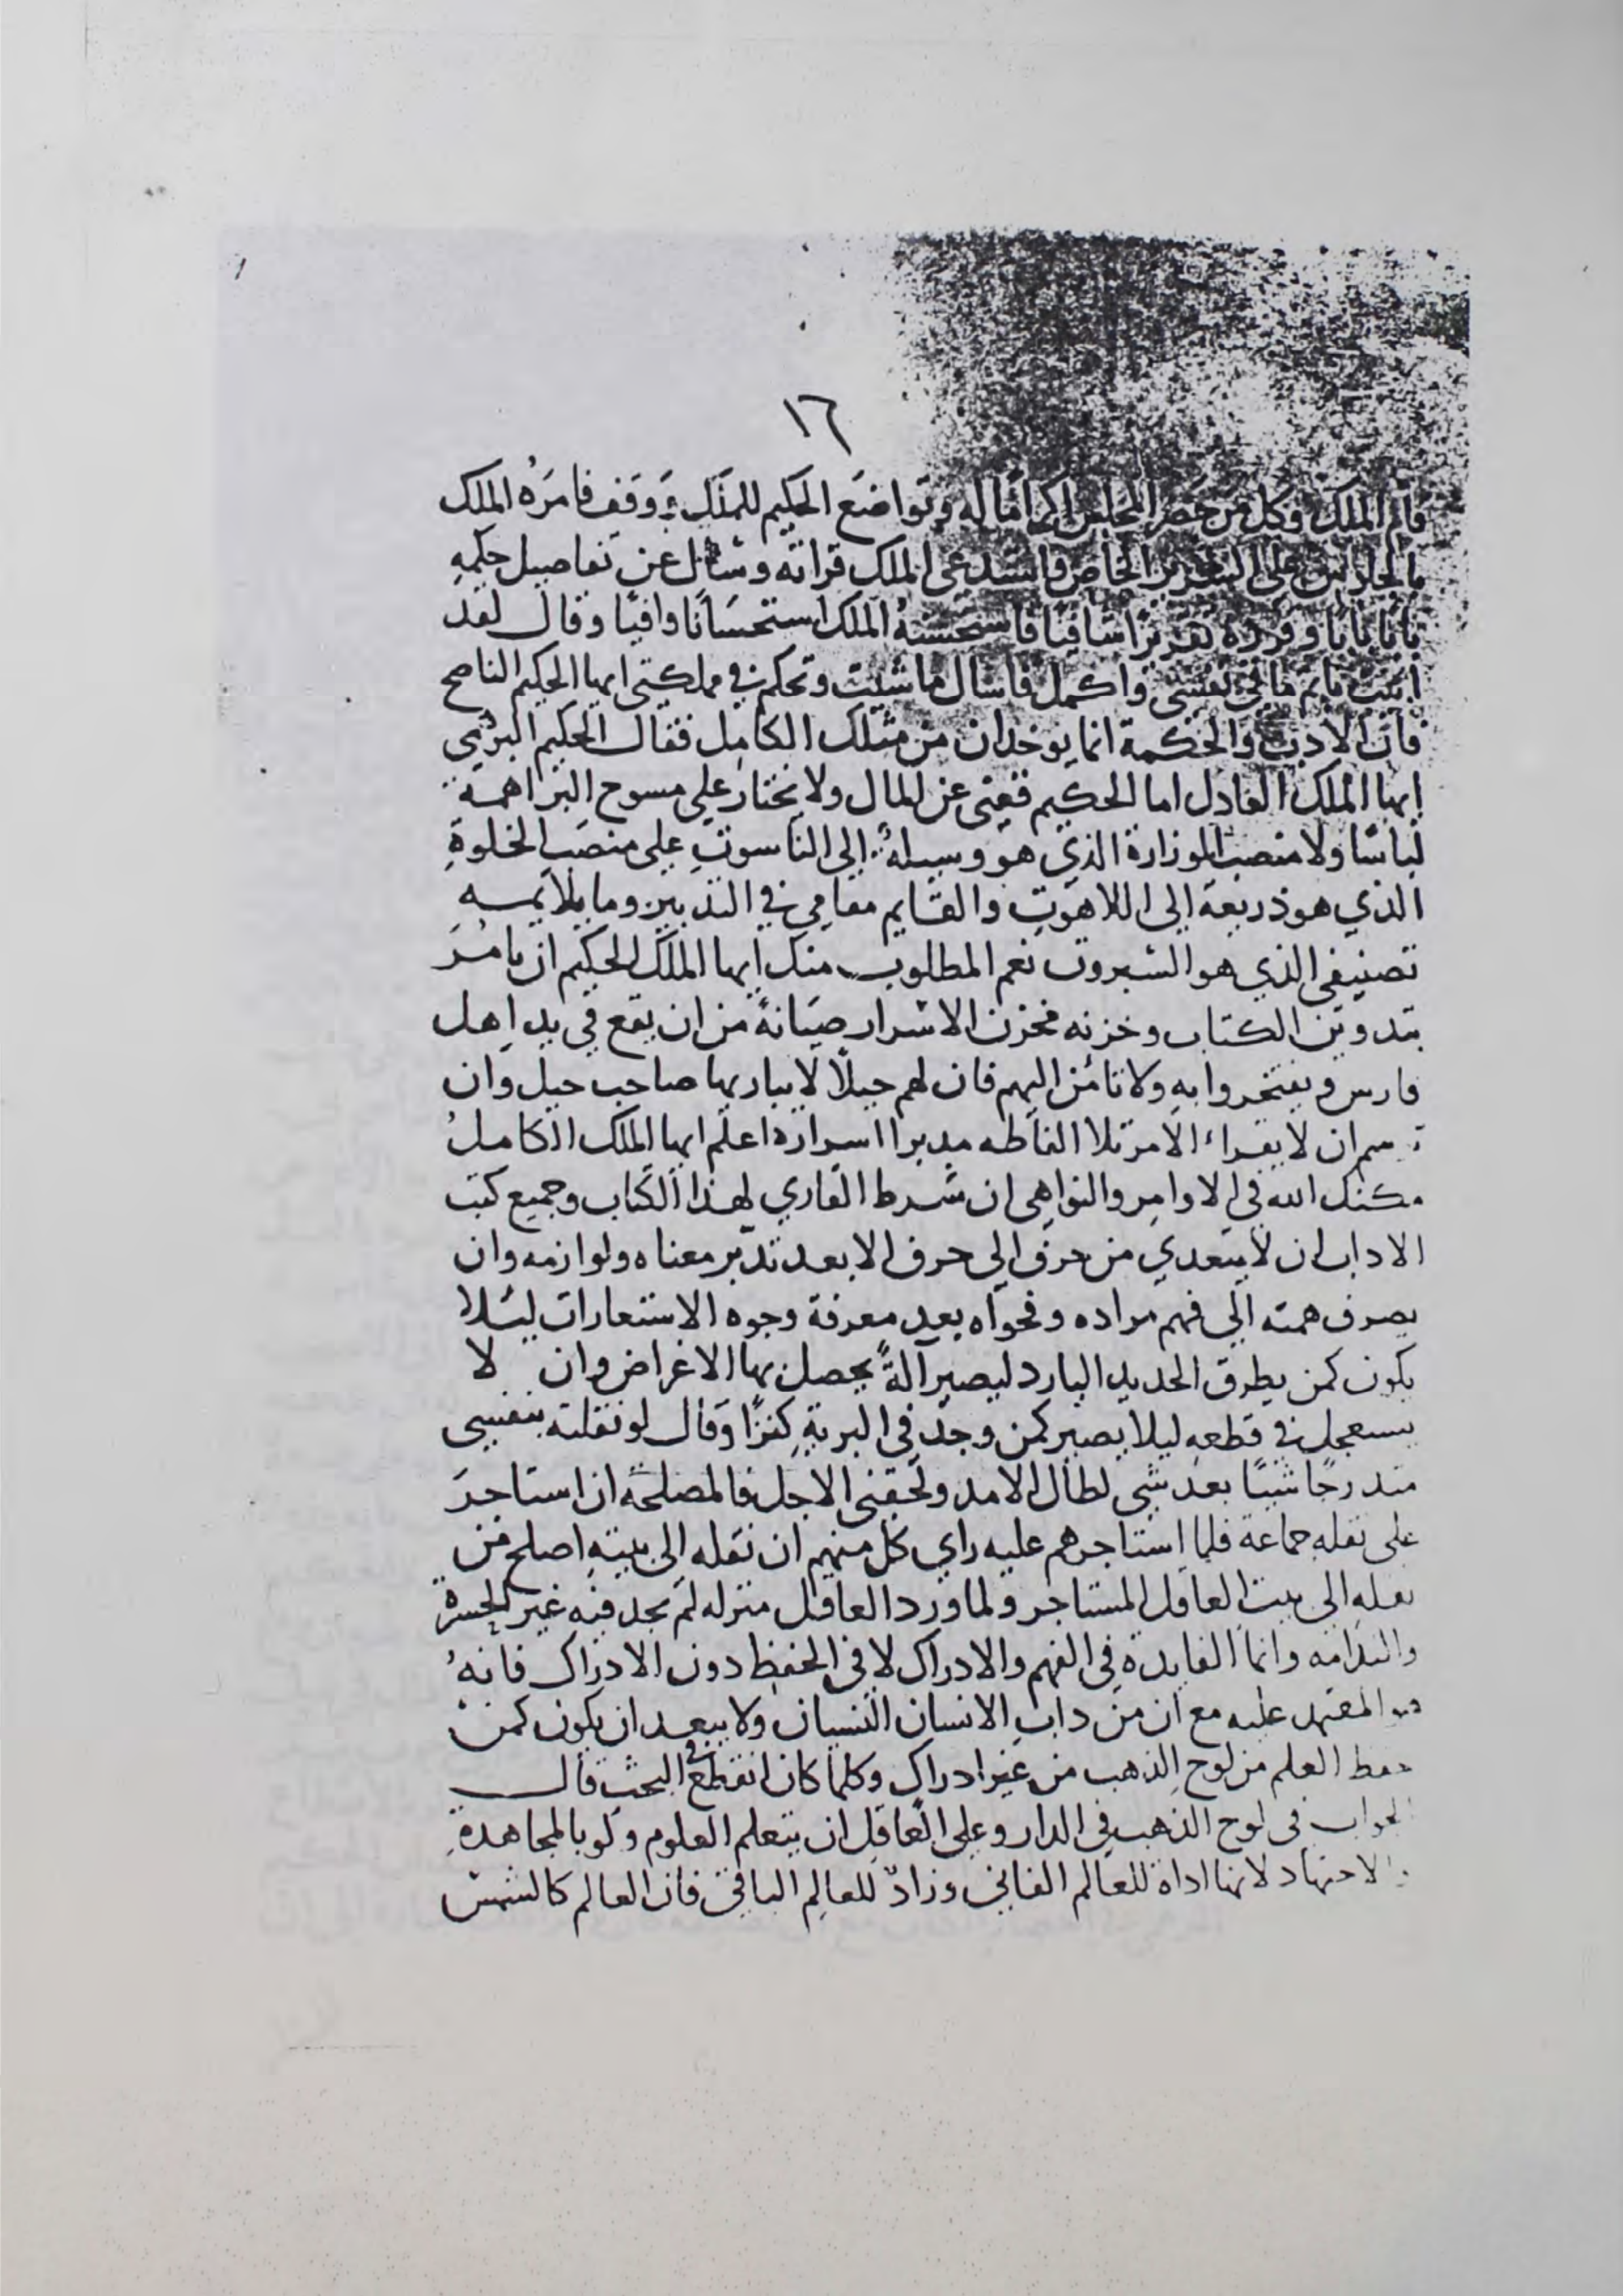 ١٦
قام الملك وكل من حضر المجلس اكراما له وتواضع الحكيم للملك ووقف فامره الملك
بالجلوس على السرير الخاص فاستدعى الملك قراته وسأل عن تفاصيل حكمه
بابا بابا وقرره تقريرا شافيا فاستحسنه الملك استحسانا وافيا وقال لقد
اتيت باتم ما في نفسي واكمل فاسال ما شيت وتحكم في مملكتي ايها الحكيم الناصح
فان الادب والحكمة انما يوخذان من مثلك الكامل فقال الحكيم البرهمي
ايها الملك العادل اما الحكيم فغني عن المال ولا يختار على مسوح البراهمة
لباسا ولا منصب الوزارة الذي هو وسيلة الى الناسوت على منصب الخلوة
الذي هو ذريعة الى اللاهوت والقايم مقامي في التدبير وما يلايمه
تصنيفي الذي هو الشيروت نعم المطلوب منك ايها الملك الحكيم ان يامر
بتدوين الكتاب وخزنه مخزن الاسرار صيانة من ان يقع في يد اهل
فارس ويفتخروا به ولا تامن اليهم فان لهم حيلا لا يباريها صاحب حيل وان
ان لا يقراء الا مرتلا الفاظه مدبرا اسراره اعلم ايها الملك الكامل
مكنك الله في الاوامر والنواهي ان شرط القاري لهذا الكتاب وجميع كتب
الاداب ان لا يتعدي من حرف الي حرف الا بعد تدبر معناه ولوازمه وان
يصرف همته الي فهم مراده وفحواه بعد معرفة وجوه الاستعارات ليلا
يكون كمن يطرق الحديد البارد ليصير آلة يحصل بها الاغراض وان لا
يستعجل في قطعه ليلا يصير كمن وجد في البرية كنزا وقال لو نقلته بنفسي
متدرجا شيئا بعد شي لطال الامد ولحقني الاجل فالمصلحة ان استاجر
على نقله جماعة فلما استاجرهم عليه راي كل منهم ان نقله الى بيته اصلح من
نقله الى بيت العاقل المستاجر ولما ورد العاقل منزله لم يجد فيه غير الحسرة
والندامة وانما الفايدة في الفهم والادراك لا في الحفظ دون الادراك فانه
المعتمد عليه مع ان من داب الانسان النسيان ولا يبعد ان يكون كمن
حفظ العلم من لوح الذهب من غير ادراك وكلما كان انقطع في البحث قال
الجواب في لوح الذهب في الدار وعلى العاقل ان يتعلم العلوم ولو بالمجاهدة
والاجتهاد لانها اداة للعالم الفاني وزاد للعالم الباقي فان العالم كالشمس